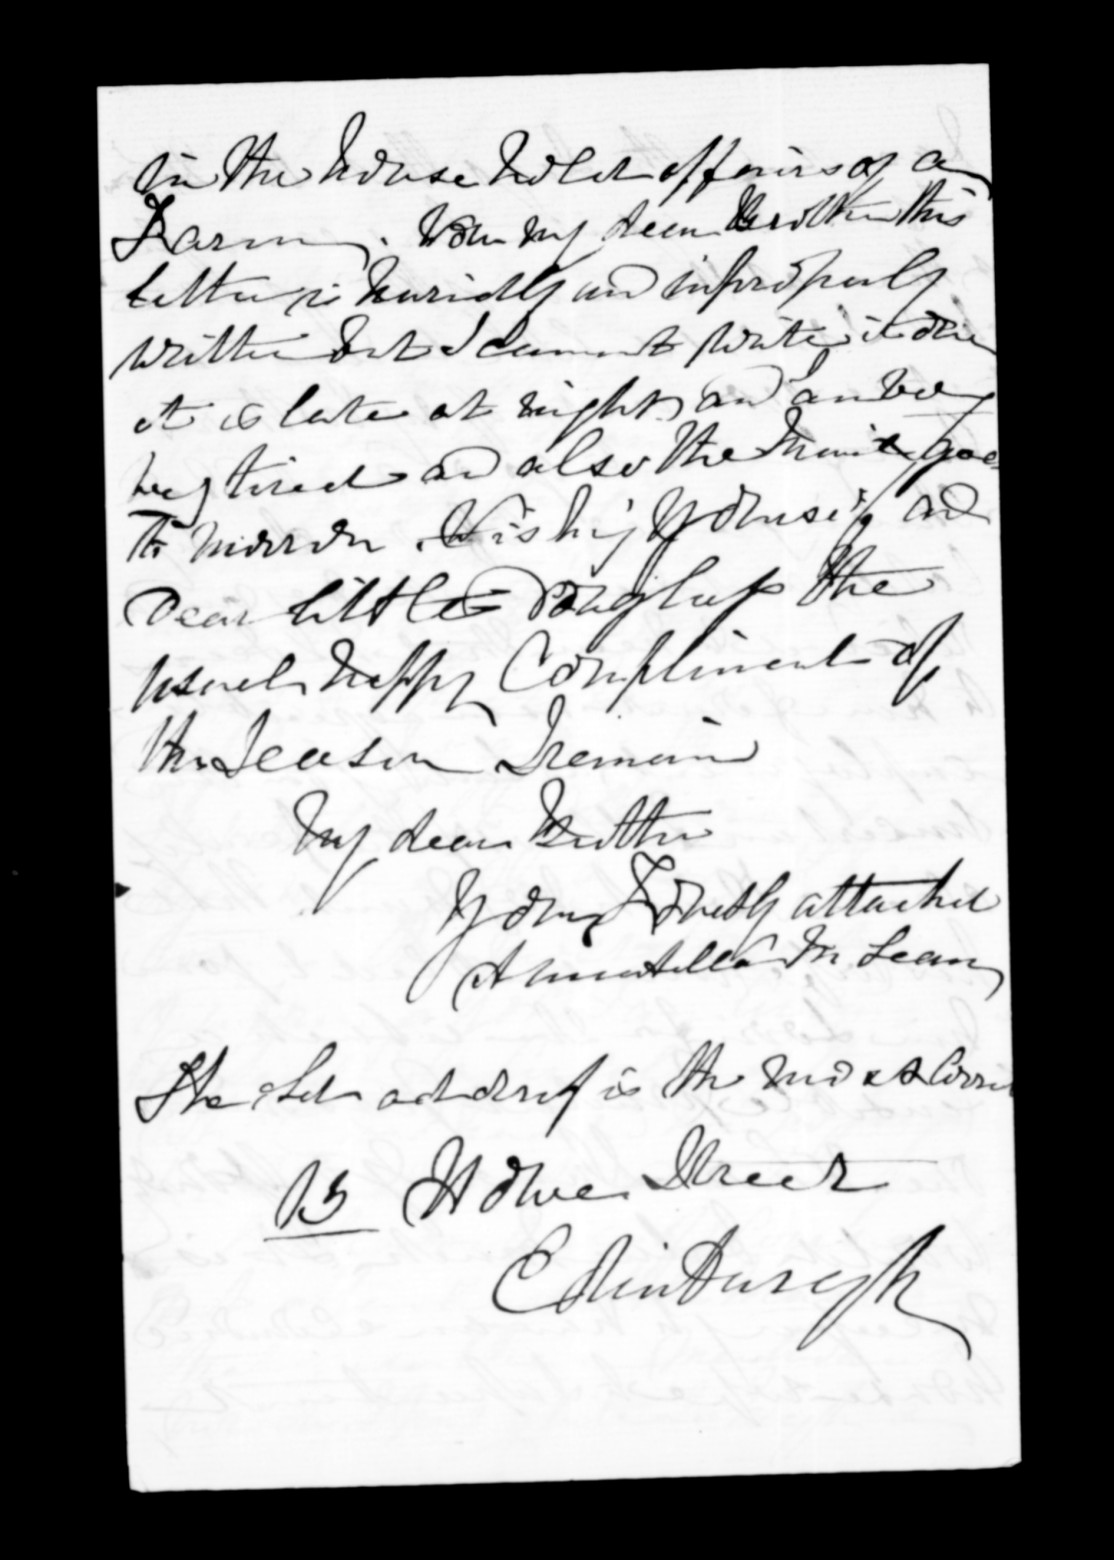 in the household affairs of a
Farm. Now my dear Brother this
letter is huridly and inproperly
written but I cannot write it over
it is late at night and I am very
very tired and also the Mail goes
To morrow. Wishing yourself and
Dear little Douglas the
usual happy Compliments of
the Season I remain
My dear Brother
Your Fondly attached
Annabella McLean
The old address is the most
13 Howe Street
Edinburgh